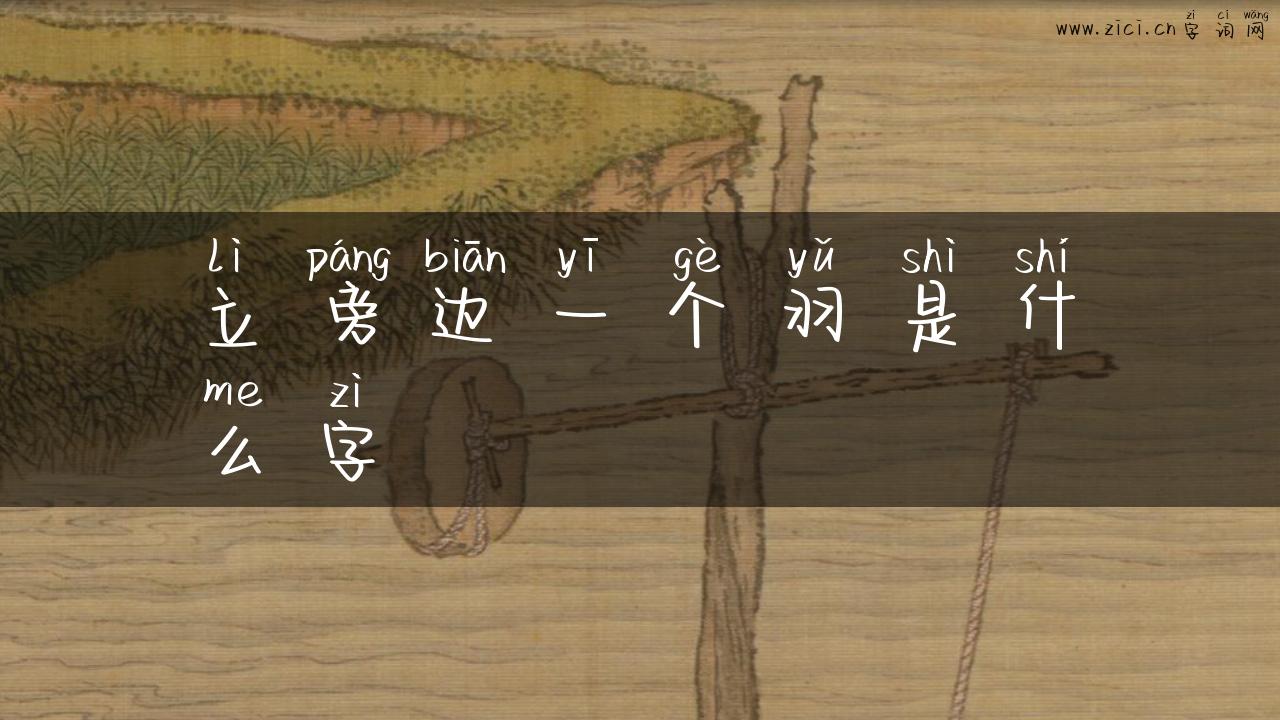 zì cí wǎng
www.zici.cn 字词网
lì páng biān yī gè yǔ shì shí
立旁边一个羽是什
me zì
么字